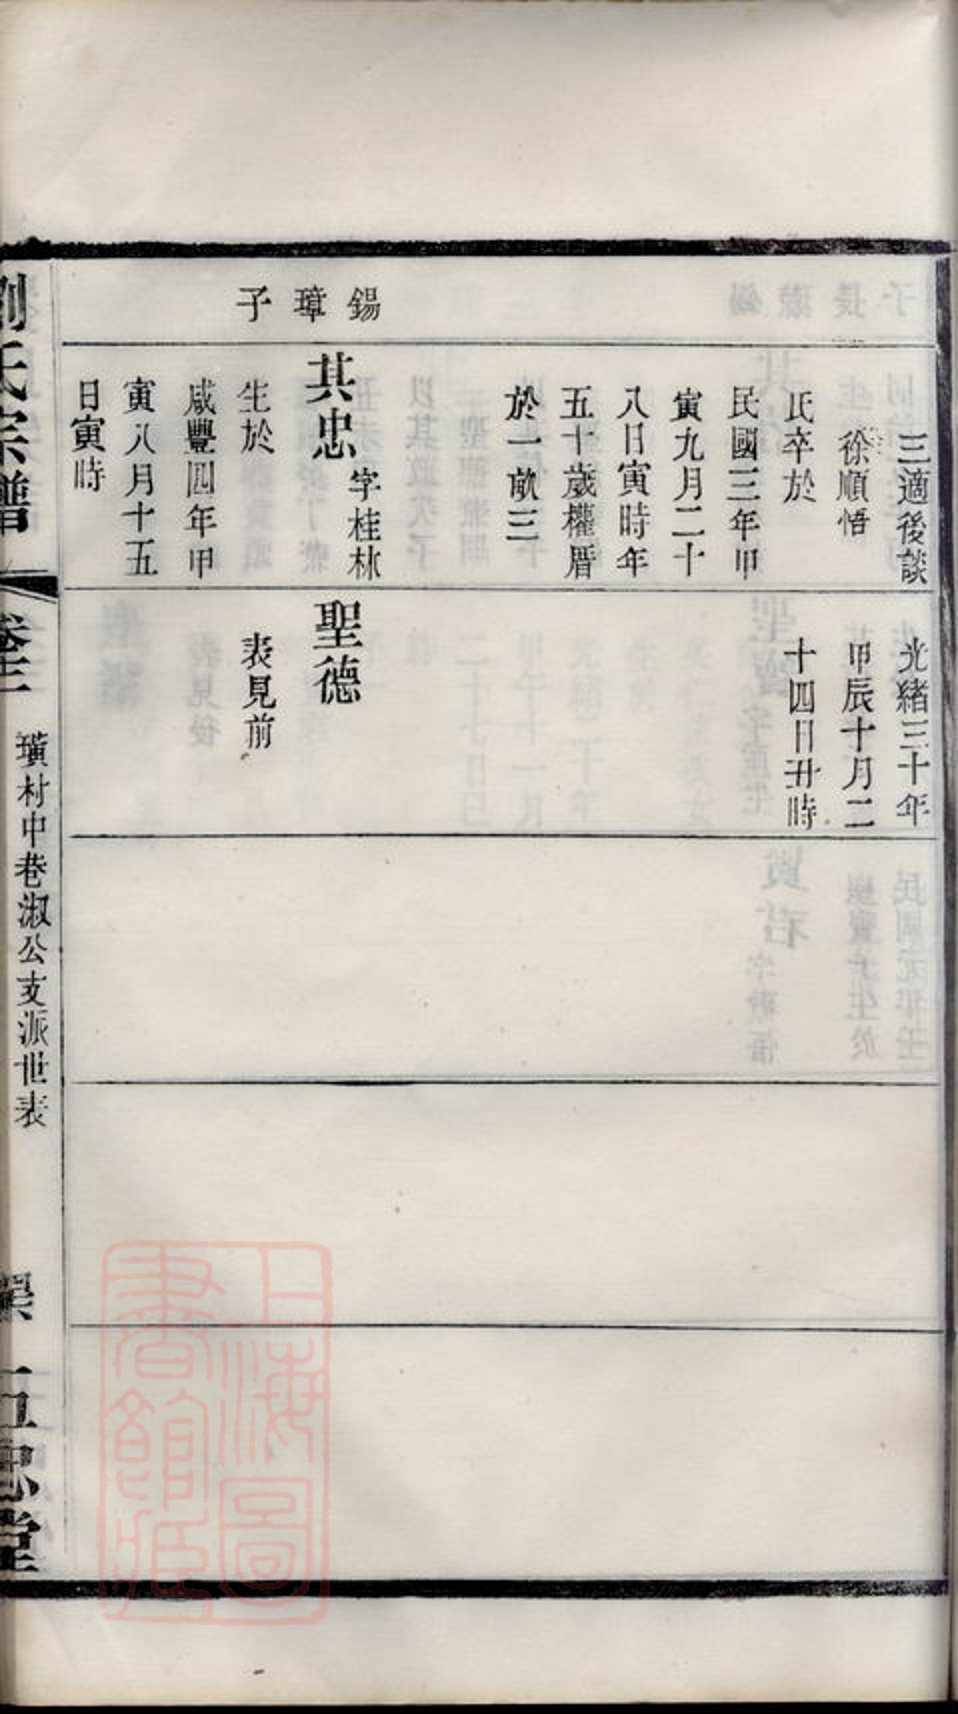 錫璋子
三適後談
徐順悟
氏卒於
民國三年甲
寅九月二十
八日寅時年
五十歲權厝
於一畝三
其忠
字桂林
生於
咸豐四年甲
寅八月十五
日寅時
光緒三十年
甲辰十月二
十四日丑時
聖德
表見前
劉氏宗譜
卷三
璜村中巷淑公支派世表
五忠堂
上海圖
書館藏